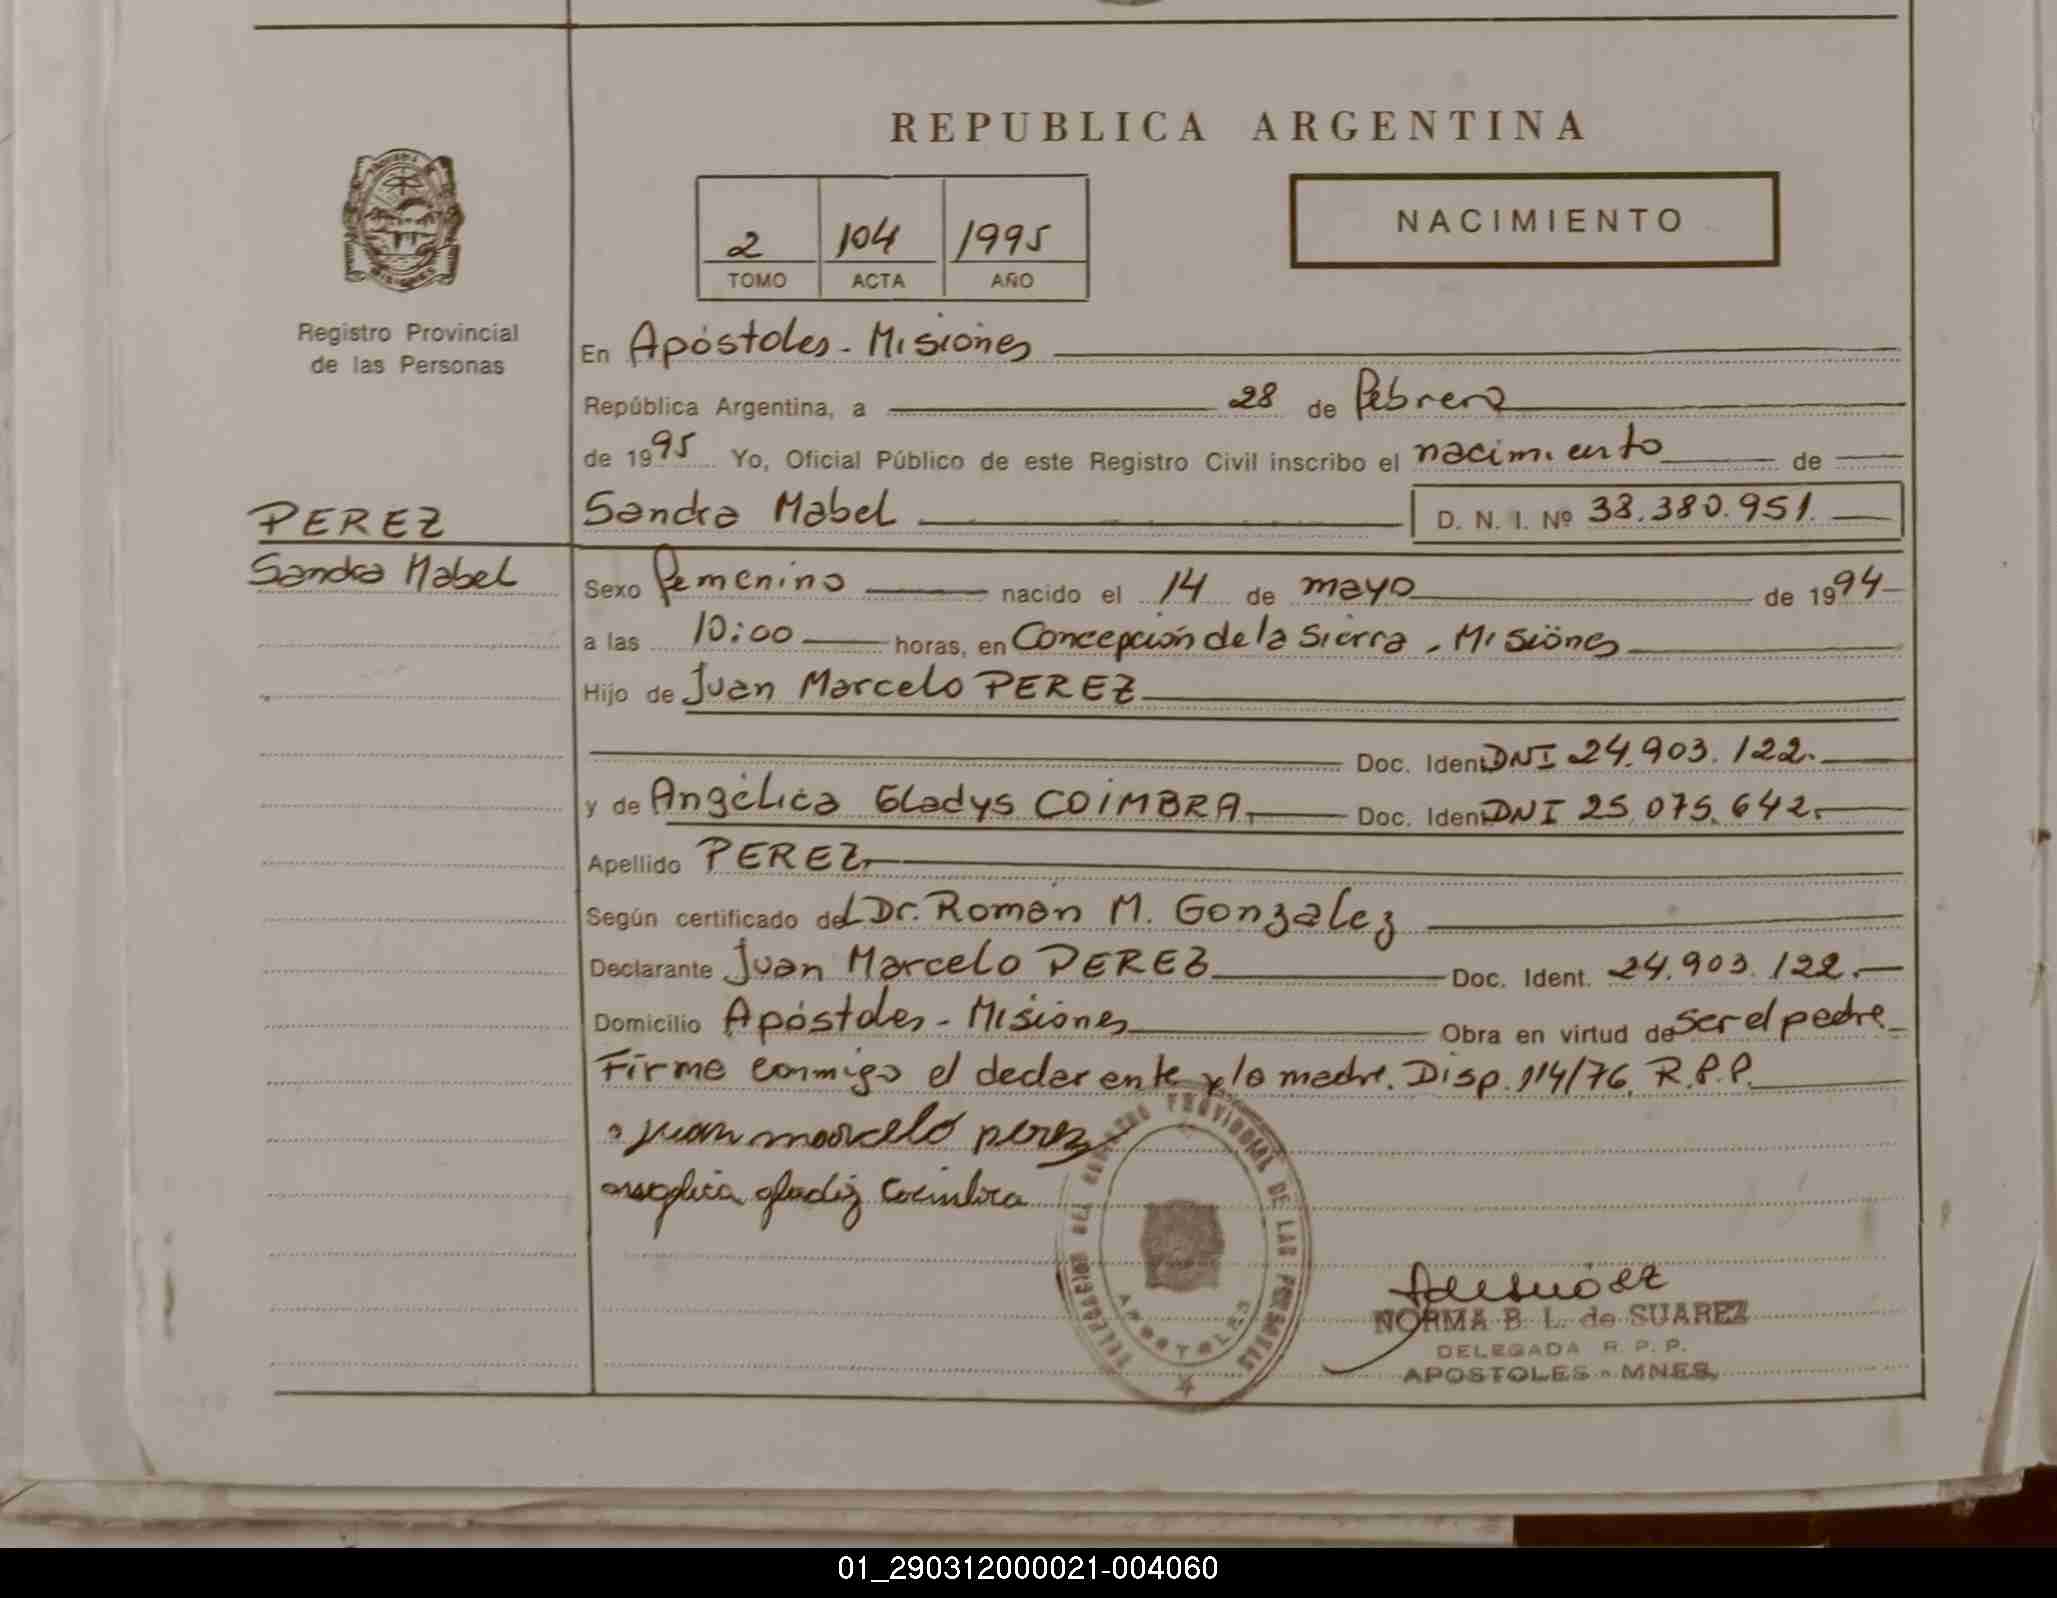 REPUBLICA ARGENTINA
NACIMIENTO
2 104 1995
TOMO ACTA AÑO
Registro Provincial
de las Personas
En Apóstoles - Misiones
República Argentina, a 28 de Febrero
de 1995 Yo, Oficial Público de este Registro Civil inscribo el nacimiento de
PEREZ
Sandra Mabel
Sandra Mabel D. N. I. Nº 38.380.951.
Sexo Femenino nacido el 14 de mayo de 1994
a las 10:00 horas, en Concepción de la Sierra - Misiones
Hijo de Juan Marcelo PEREZ
Doc. Ident DNI 24.903.122.
y de Angélica Gladys COIMBRA. Doc. Ident DNI 25.075.642.
Apellido PEREZ
Según certificado del Dr. Román M. Gonzalez
Declarante Juan Marcelo PEREZ Doc. Ident. 24.903.122.
Domicilio Apóstoles - Misiones Obra en virtud de ser el padre
Firma conmigo el declarante y la madre. Disp. 114/76. R.P.P.
juan marcelo perez
angelica gladiz Coimbra
DELEGACION DEL REGISTRO PROVINCIAL DE LAS PERSONAS
APOSTOLES
NORMA B. L. de SUAREZ
DELEGADA R. P. P.
APOSTOLES - MNES.
01_290312000021-004060